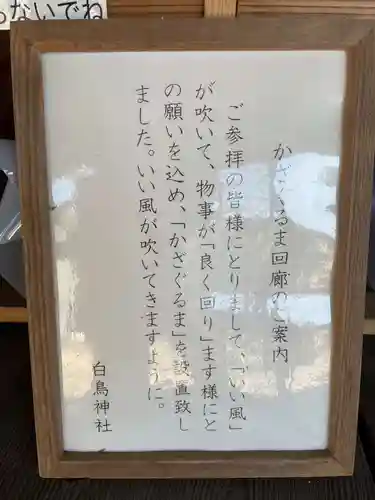 らないでね
かざぐるま回廊のご案内
ご参拝の皆様にとりまして、「いい風」
が吹いて、物事が「良く回り」ます様にと
の願いを込め、「かざぐるま」を設置致し
ました。いい風が吹いてきますように。
白鳥神社